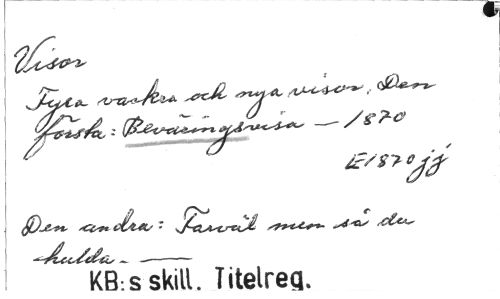 Visor
Fyra vackra och nya visor. Den
första: Beväringsvisa — 1870
E1870 jj
Den andra: Farväl men så du
hulda. —
KB:s skill. Titelreg.